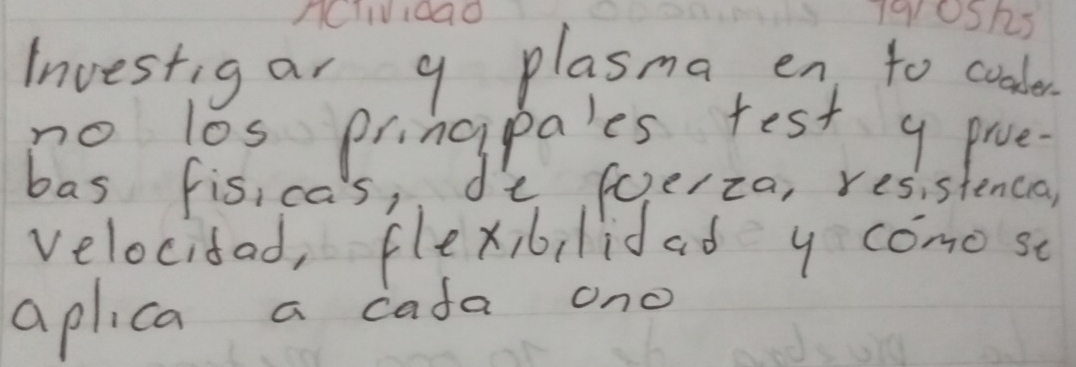 Actividad
Investigar y plasma en tu cuader-
no los principales test y prue-
bas fisicas, de fuerza, resistencia,
velocidad, flexibilidad y cómo se
aplica a cada uno